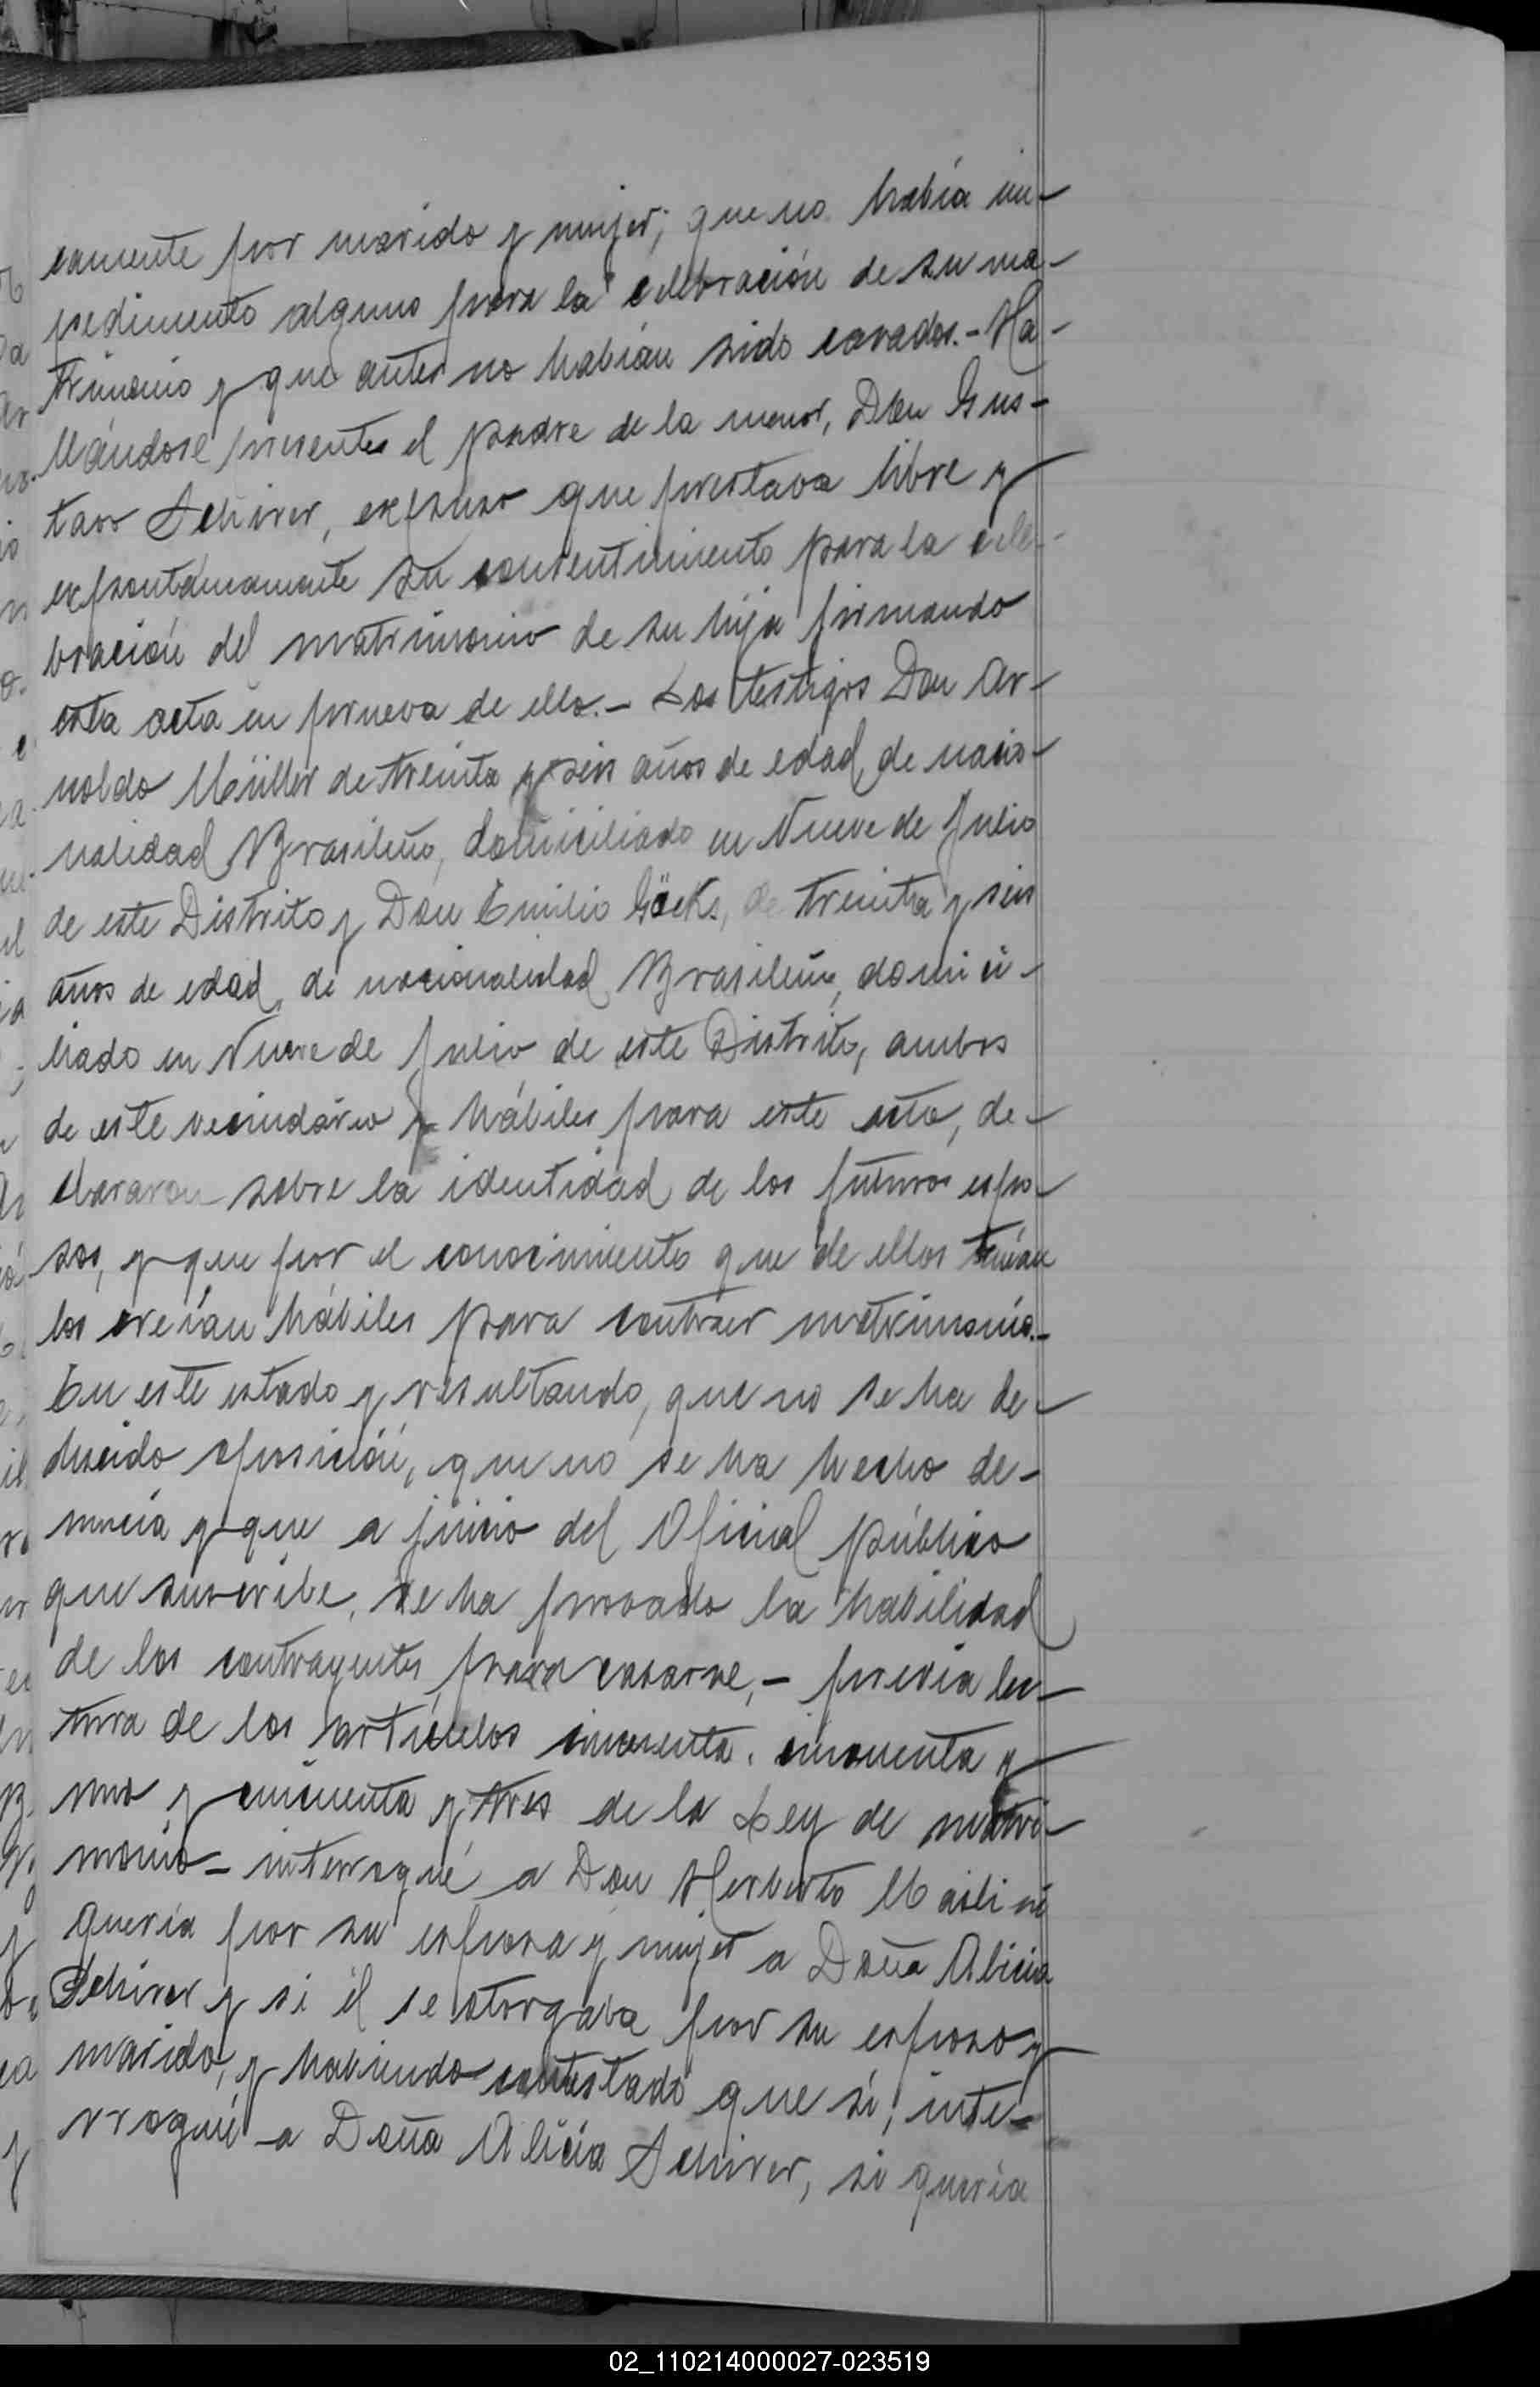 camente por marido y mujer; que no había im-
pedimento alguno para la celebración de su ma-
trimonio y que antes no habían sido casados.- Ha-
llándose presente el padre de la menor, Don Gus-
tavo Schirer, expuso que prestava libre y
expontáneamente su consentimiento para la cele-
bración del matrimonio de su hija firmando
esta acta en prueva de ello.- Los testigos Don Ar-
noldo Müller de treinta y seis años de edad, de nacio-
nalidad Brasileño, domiciliado en Nueve de Julio
de este Distrito y Don Emilio Göcks, de treinta y seis
años de edad, de nacionalidad Brasileño, domici-
liado en Nueve de Julio de este Distrito, ambos
de este vecindario y hábiles para este acto, de-
clararon sobre la identidad de los futuros espo-
sos, y que por el conocimiento que de ellos tenían
los creían hábiles para contraer matrimonio.-
En este estado y resultando, que no se ha de-
ducido oposición, que no se ha hecho de-
nuncia y que a juicio del Oficial público
que suscribe, se ha provado la habilidad
de los contrayentes para casarse,- previa lec-
tura de los artículos cincuenta, cincuenta y
uno y cincuenta y tres de la Ley de matri-
monio- interrogué a Don Herberto si
quería por su esposa y mujer a Doña Alicia
Schirer y si él se otorgava por su esposo y
marido, y habiendo contestado que sí, inte-
rrogué a Doña Alicia Schirer, si quería
02_110214000027-023519